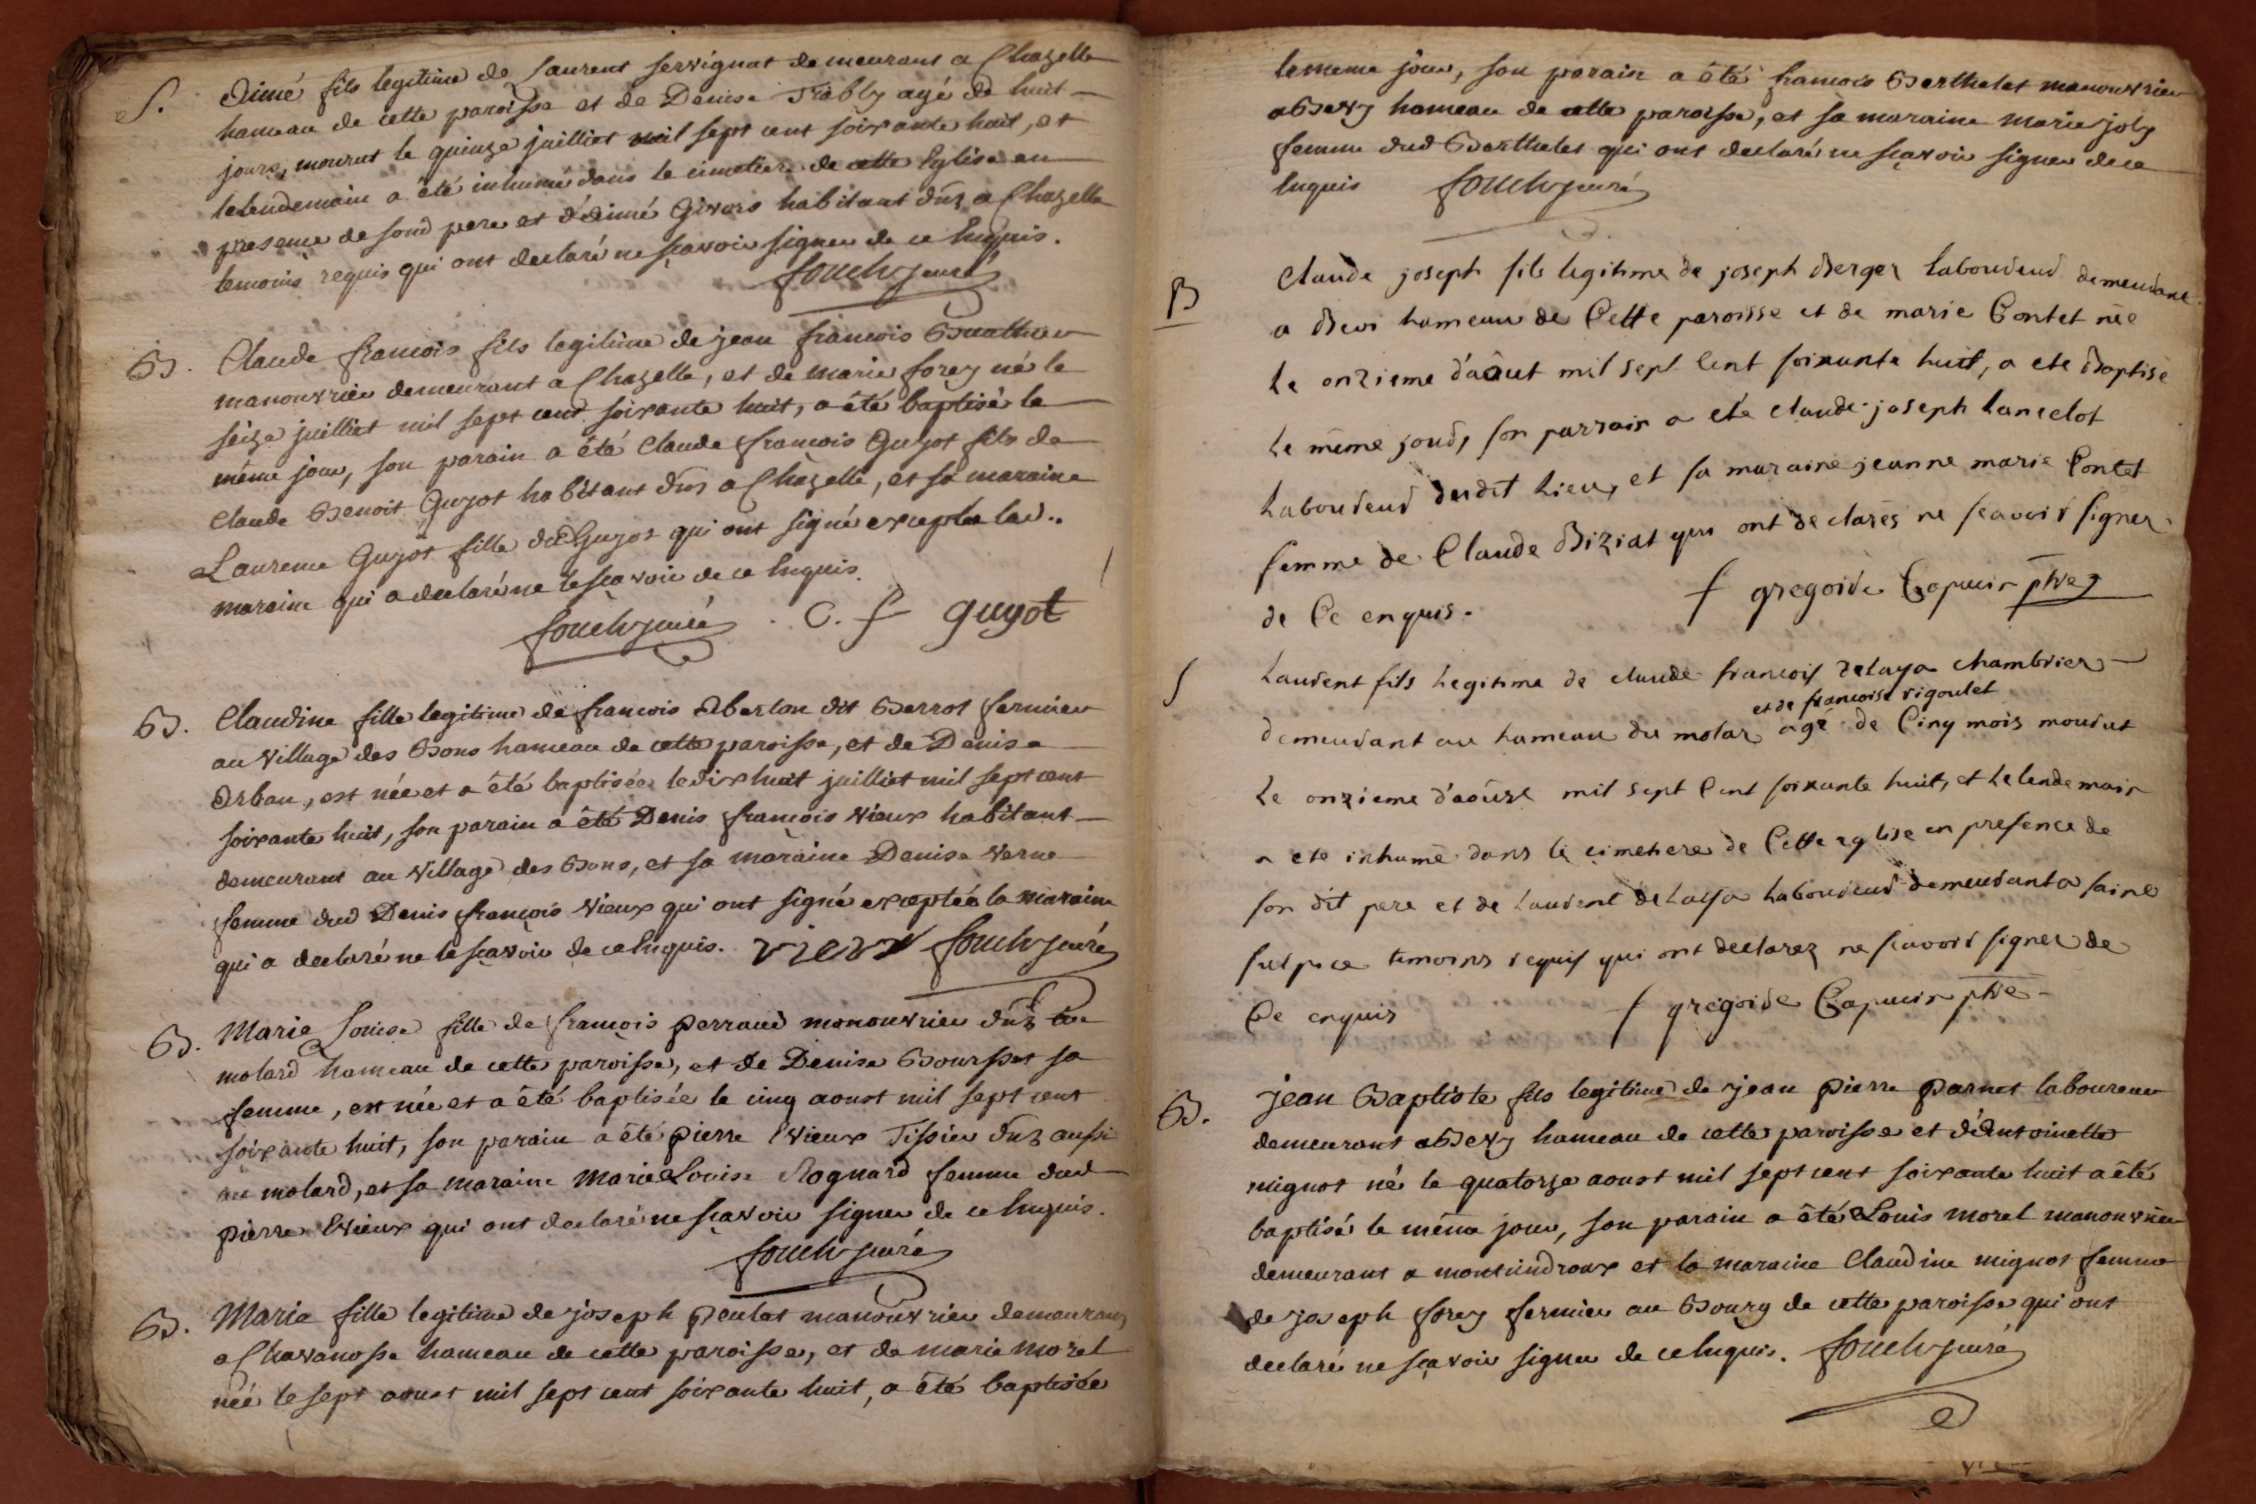 S. Aimé fils legitime de Laurent servignat demeurant a Chazelle
hameau de cette paroisse et de Denise Trably agé de huit
jours, mourut le quinze juilliet mil sept cent soixante huit, et
le lendemain a été inhumé dans le cimetiere de cette Eglise en
presence de sond pere et d'aimé Givors habitant dud a Chazelle
temoins requis qui ont declaré ne sçavoir signer de ce Enquis.
curé
B. Claude francois fils legitime de jean francois
manouvrier demeurant a Chazelle, et de marie forey né le
seize juilliet mil sept cent soixante huit, a été baptisé le
même jour, son parain a été Claude francois Guyot fils de
Claude Benoit Guyot habitant a Chazelle, et sa maraine
Laurence Guyot fille dud Guyot qui ont signé exceptee lad..
maraine qui a declaré ne le sçavoir de ce Enquis.
curé C. f guyot
B. Claudine fille legitime de francois Aberlon dit Berrot fermier
au village des Bons hameau de cette paroisse, et de Denise
Arbau, est née et a été baptisée le dix huit juilliet mil sept cent
soixante huit, son parain a été Denis francois Vieux habitant
demeurant au village des Bons, et sa maraine Denise Verne
femme dud Denis francois Vieux qui ont signé exceptée la maraine
qui a declaré ne le sçavoir de ce Enquis. vieux curé
B. Marie Louise fille de francois perraud manouvrier au
molard hameau de cette paroisse, et de Denise Boursset sa
femme, est née et a été baptisée le cinq aoust mil sept cent
soixante huit, son parain a été pierre Vieux Tissier aussi
au molard, et sa maraine Marie Louise Rognard femme dud
pierre Vieux qui ont declaré ne sçavoir signer de ce Enquis.
curé
B. Marie fille legitime de joseph peulet manouvrier demeurant
a Chavanosse hameau de cette paroisse, et de marie morel
née le sept aoust mil sept cent soixante huit, a été baptisée
le meme jour, son parain a été francois Berthelet manouvrier
a Bevy hameau de cette paroisse, et sa maraine marie joly
femme dud Berthelet qui ont declaré ne sçavoir signer de ce
Enquis curé
B Claude joseph fils legitime de joseph Berger laboureur demeurant
a Bevi hameau de Cette paroisse et de marie Contet née
le onzieme d'aôut mil sept Cent soixante huit, a eté Baptisé
le même jour, son parrain a eté Claude joseph Lancelot
laboureur dudit lieu, et sa maraine jeanne marie Contet
femme de Claude Biziat qui ont declarés ne scavoir signer
de Ce enquis. f gregoire Capucin ptre
S Laurent fils legitime de claude francois delaya chambrier
et de francoise rigoulet
demeurant au hameau du molar agé de Cinq mois mourut
le onzieme d'aoûst mil sept Cent soixante huit, et le lendemain
a eté inhumé dans le cimetiere de Cette eglise en presence de
son dit pere et de Laurent delaya laboureur demeurant a saint
sulpice temoins requis qui ont declarez ne scavoir signer de
Ce enquis f gregoire Capucin ptre
B. jean Baptiste fils legitime de jean pierre parnet laboureur
demeurant a Bevy hameau de cette paroisse et d'Antoinette
mignot né le quatorze aoust mil sept cent soixante huit a été
baptisé le même jour, son parain a été Louis morel manouvrier
demeurant a montcindroux et la maraine Claudine mignot femme
de joseph forey fermier au Bourg de cette paroisse qui ont
declaré ne sçavoir signer de ce Enquis. curé